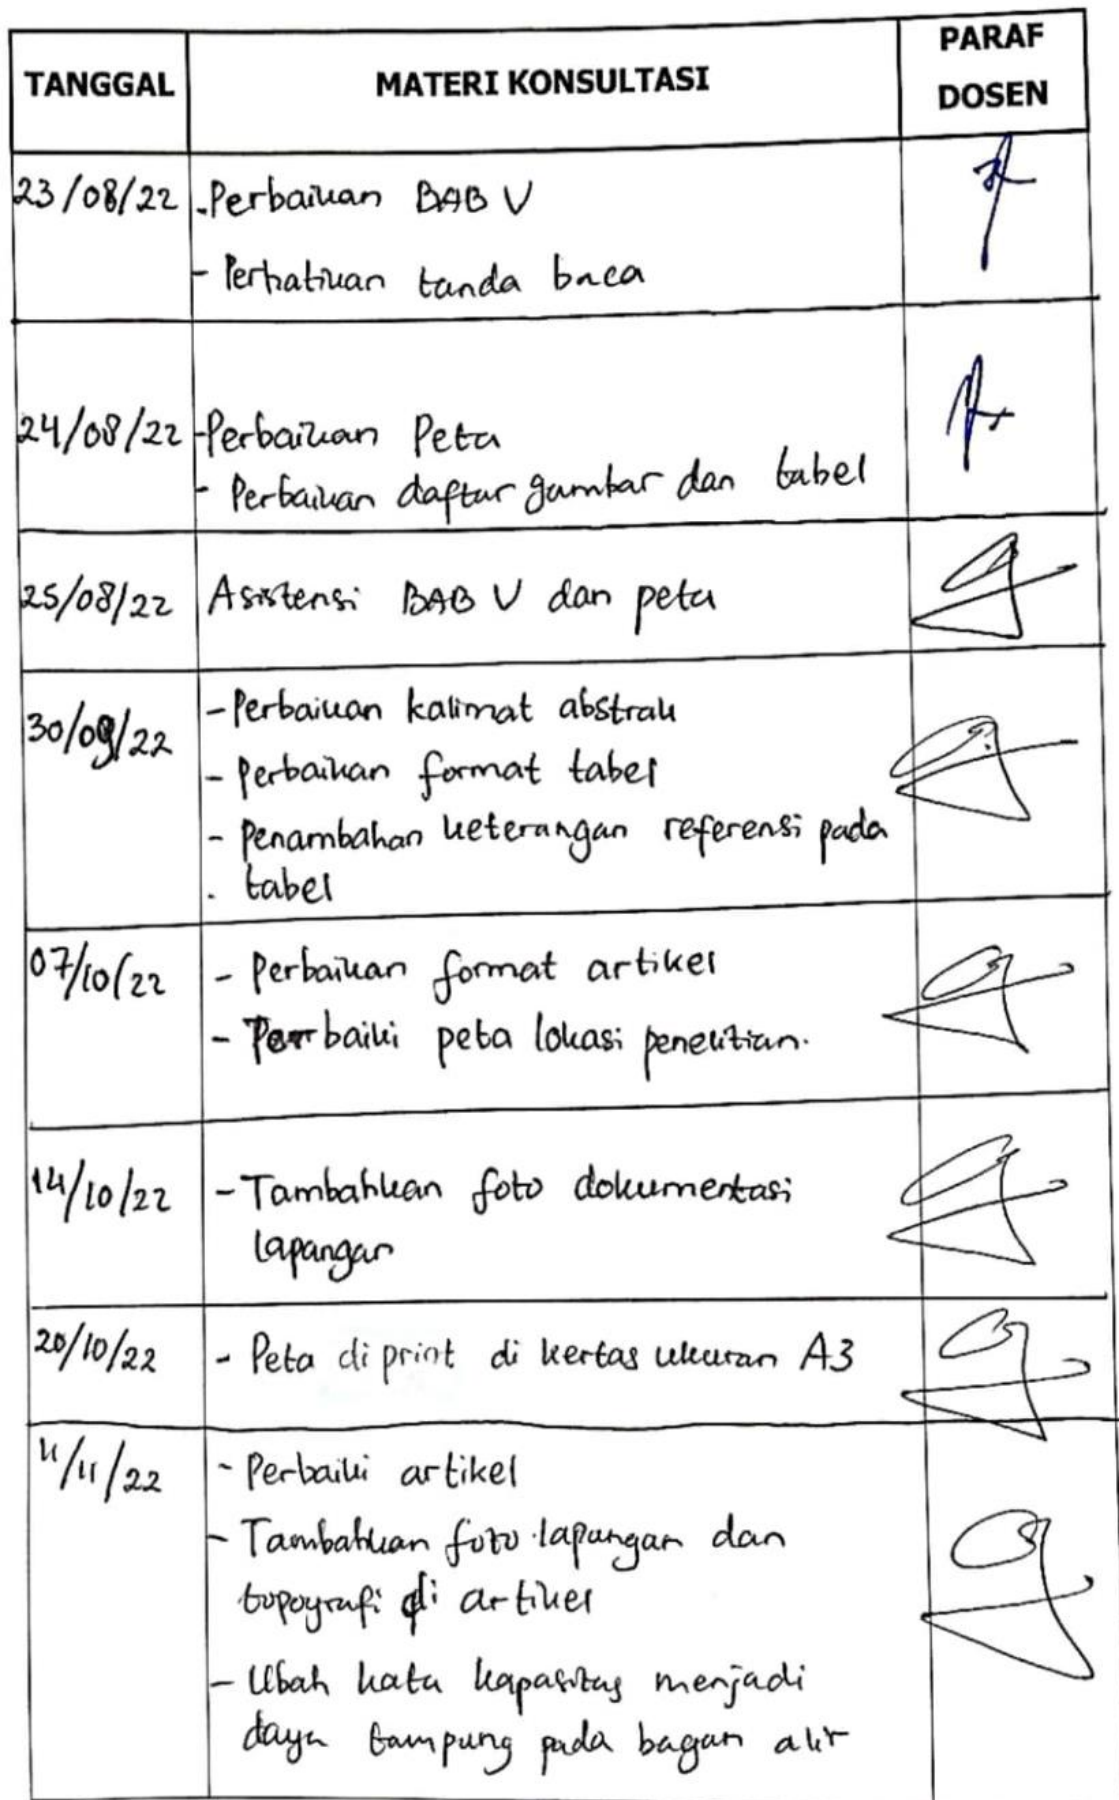 TANGGAL MATERI KONSULTASI PARAF DOSEN
23/08/22 - Perbaikan BAB V
- Perhatikan tanda baca
24/08/22 - Perbaikan Peta
- Perbaikan daftar gambar dan tabel
25/08/22 Asistensi BAB V dan peta
30/09/22 - Perbaikan kalimat abstrak
- Perbaikan format tabel
- Penambahan keterangan referensi pada
tabel
07/10/22 - Perbaikan format artikel
- Perbaiki peta lokasi penelitian.
14/10/22 - Tambahkan foto dokumentasi
lapangan
20/10/22 - Peta di print di kertas ukuran A3
11/11/22 - Perbaiki artikel
- Tambahkan foto lapangan dan
topografi di artikel
- Ubah kata kapasitas menjadi
daya tampung pada bagan alir